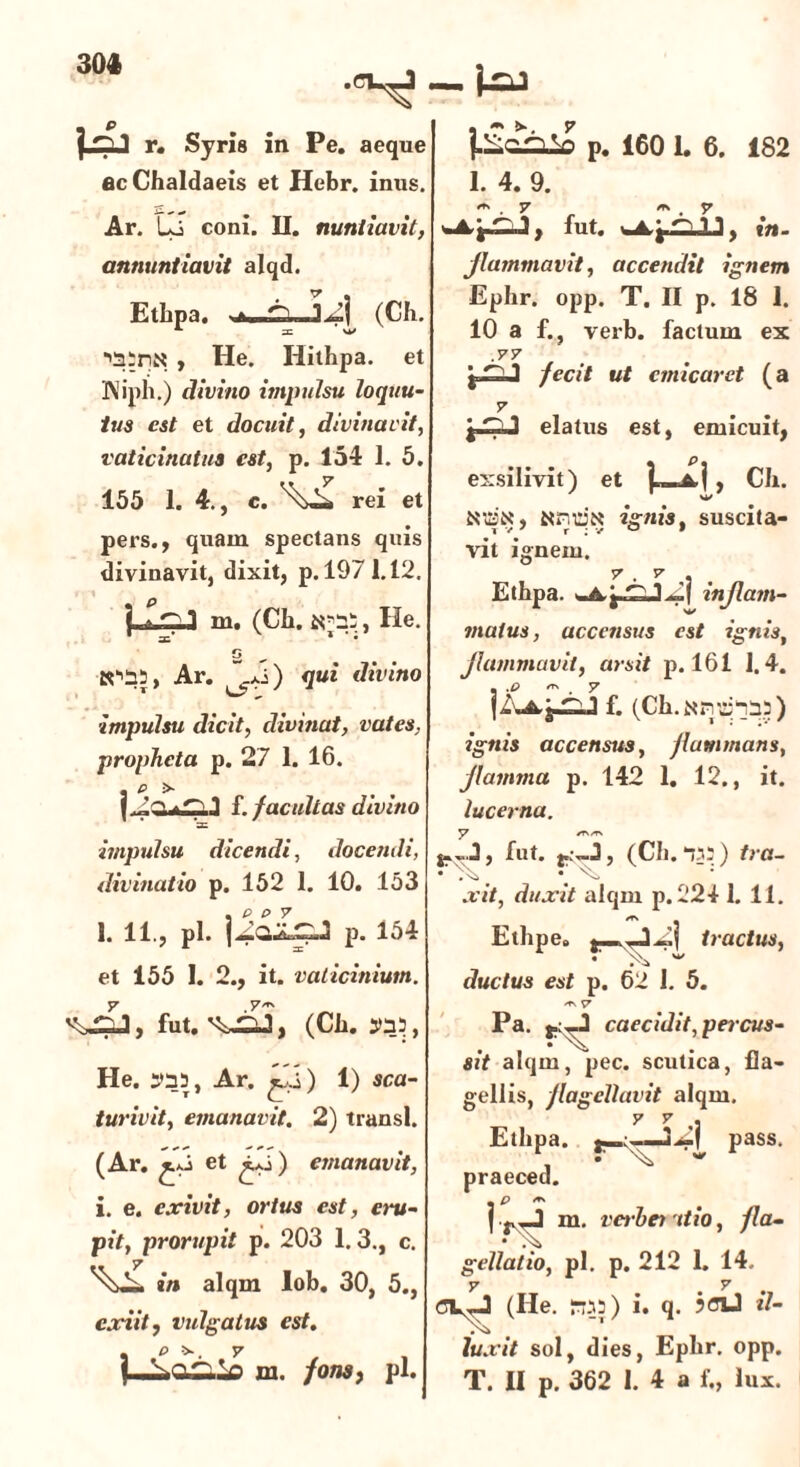 304
ܢܓܗ. — ܢܒܐ
ܢܒܐ r. Syris in Pe. aeque
ac Chaldaeis et Hebr. inus.
Ar. نبا coni. II. nuntiavit,
annuntiavit alqd.
Ethpa. ܐܬܢܒܝ (Ch.
אתנבי, He. Hithpa. et
Niph.) divino impulsu loquu-
tus est et docuit, divinavit,
vaticinatus est, p. 154 l. 5.
155 l. 4., c. ܥܰܠ rei et
pers., quam spectans quis
divinavit, dixit, p. 197 l. 12.
ܢܒܝܐ m. (Ch. נְבִיָא, He.
נָבִיא, Ar. نبي) qui divino
impulsu dicit, divinat, vates,
propheta p. 27 l. 16.
ܢܒܝܘܬܐ f. facultas divino
impulsu dicendi, docendi,
divinatio p. 152 l. 10. 153
l. 11., pl. ܢܒܝܘܬܐ p. 154
et 155 l. 2., it. vaticinium.
ܢܒܰܥ, fut. ܢܒܰܥ, (Ch. נבע,
He. נָבַע, Ar. نبع) 1) sca-
turivit, emanavit. 2) transl.
(Ar. نبع et نبغ) emanavit,
i. e. exivit, ortus est, eru-
pit, prorupit p. 203 l. 3., c.
ܥܰܠ in alqm Iob. 30, 5.,
exiit, vulgatus est.
ܡܰܒܘܥܐ m. fons, pl.
ܡܰܒܘܥܐ p. 160 l. 6. 182
l. 4. 9.
ܢܰܒܪܫ, fut. ܢܢܰܒܪܫ, in-
flammavit, accendit ignem
Ephr. opp. T. II p. 18 l.
10 a f., verb. factum ex
ܢܒܪ fecit ut emicaret (a
ܢܒܰܪ elatus est, emicuit,
exsilivit) et ܐܫܐ, Ch.
אֶשָּׁא, אֶשָּׁתָא ignis, suscita-
vit ignem.
Ethpa. ܐܬܢܰܒܪܰܫ inflam-
matus, accensus est ignis,
flammavit, arsit p. 161 l. 4.
ܢܰܒܪܫܬܐ f. (Ch. נֶבְרַשְׁתָּא)
ignis accensus, flammans,
flamma p. 142 l. 12., it.
lucerna.
ܢܓܰܕ, fut. ܢܓܕ, (Ch. נגד) tra-
xit, duxit alqm p. 224 l. 11.
Ethpe. ܐܬܢܓܕ tractus,
ductus est p. 62 l. 5.
Pa. ܢܰܓܕ caecidit, percus-
sit alqm, pec. scutica, fla-
gellis, flagellavit alqm.
Ethpa. ܐܬܢܰܓܰܕ pass.
praeced.
ܢܓܕܐ m. verberatio, fla-
gellatio, pl. p. 212 l. 14.
ܢܓܰܗ (He. נגה) i. q. ܢܗܰܪ il-
luxit sol, dies, Ephr. opp.
T. II p. 362 l. 4 a f., lux.